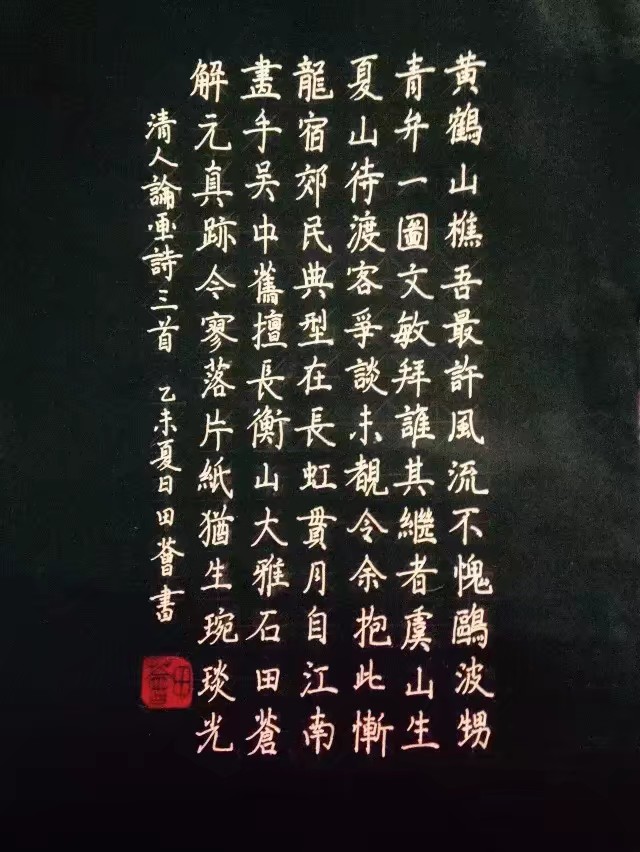 黄鶴山樵吾最許風流不愧鷗波甥
青弁一圖文敏拜誰其繼者虞山生
夏山待渡客爭談未覩令余抱此慚
龍宿郊民典型在長虹貫月自江南
畫手吴中舊擅長衡山大雅石田蒼
解元真跡今寥落片紙猶生琬琰光
清人論畫詩三首 乙未夏日田薈書